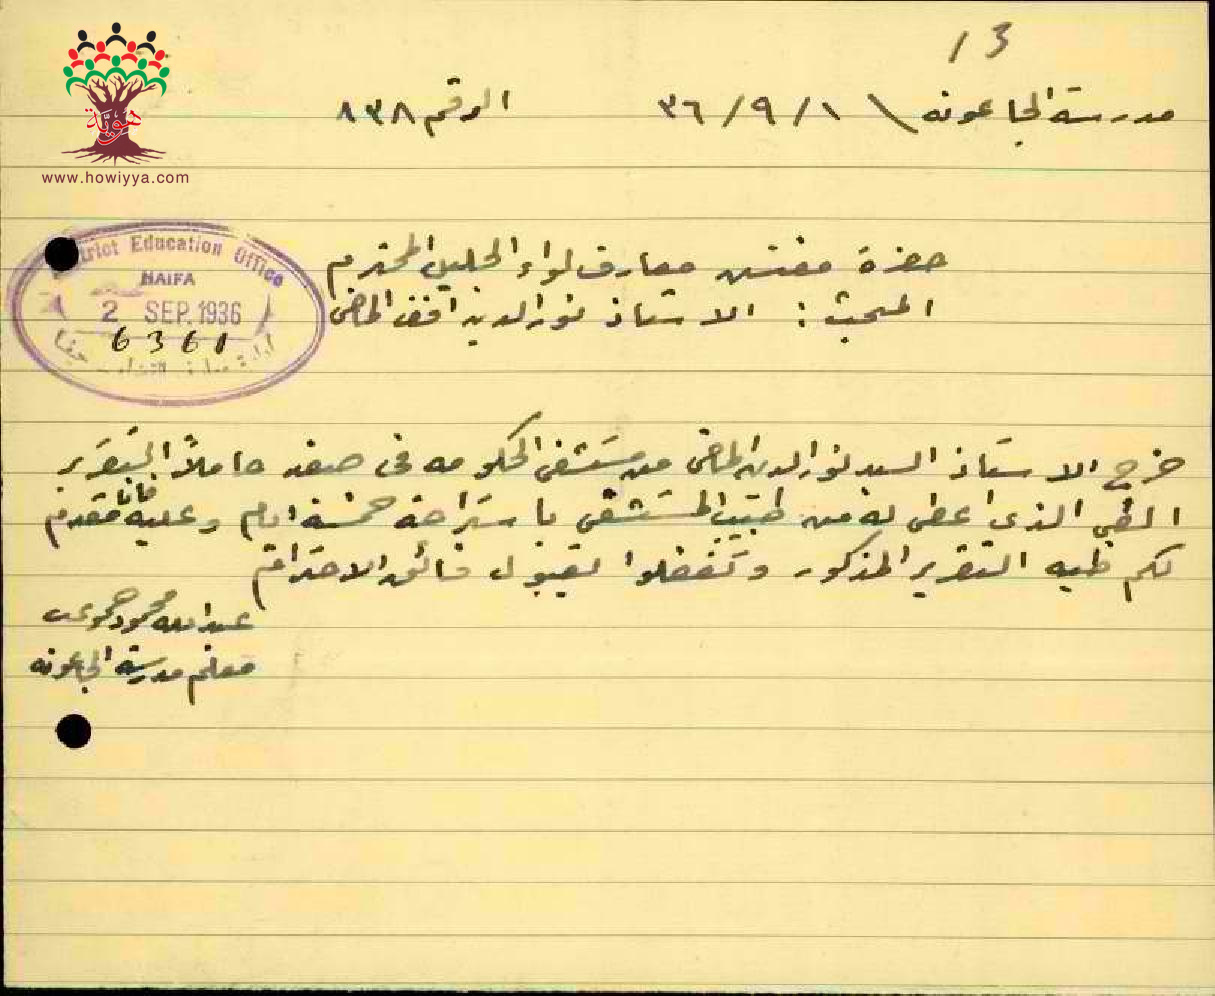 13
مدرسة الجاعونه \ ١/٩/٣٦ الرقم ٨٣٨
هوية
www.howiyya.com
District Education Office
HAIFA
2 SEP. 1936
6361
حضرة مفتش معارف لواء الجليل المحترم
المبحث : الاستاذ نور الدين افندي الماضي
خرج الاستاذ السيد نور الدين الماضي من مستشفى الحكومه في صفد حاملاً التقرير
الطبي الذي اعطي له من طبيب المستشفى باستراحة خمسة ايام وعليه فانا مقدم
لكم طيه التقرير المذكور وتفضلوا بقبول فائق الاحترام
عبدالله محمود
معلم مدرسة الجاعونه